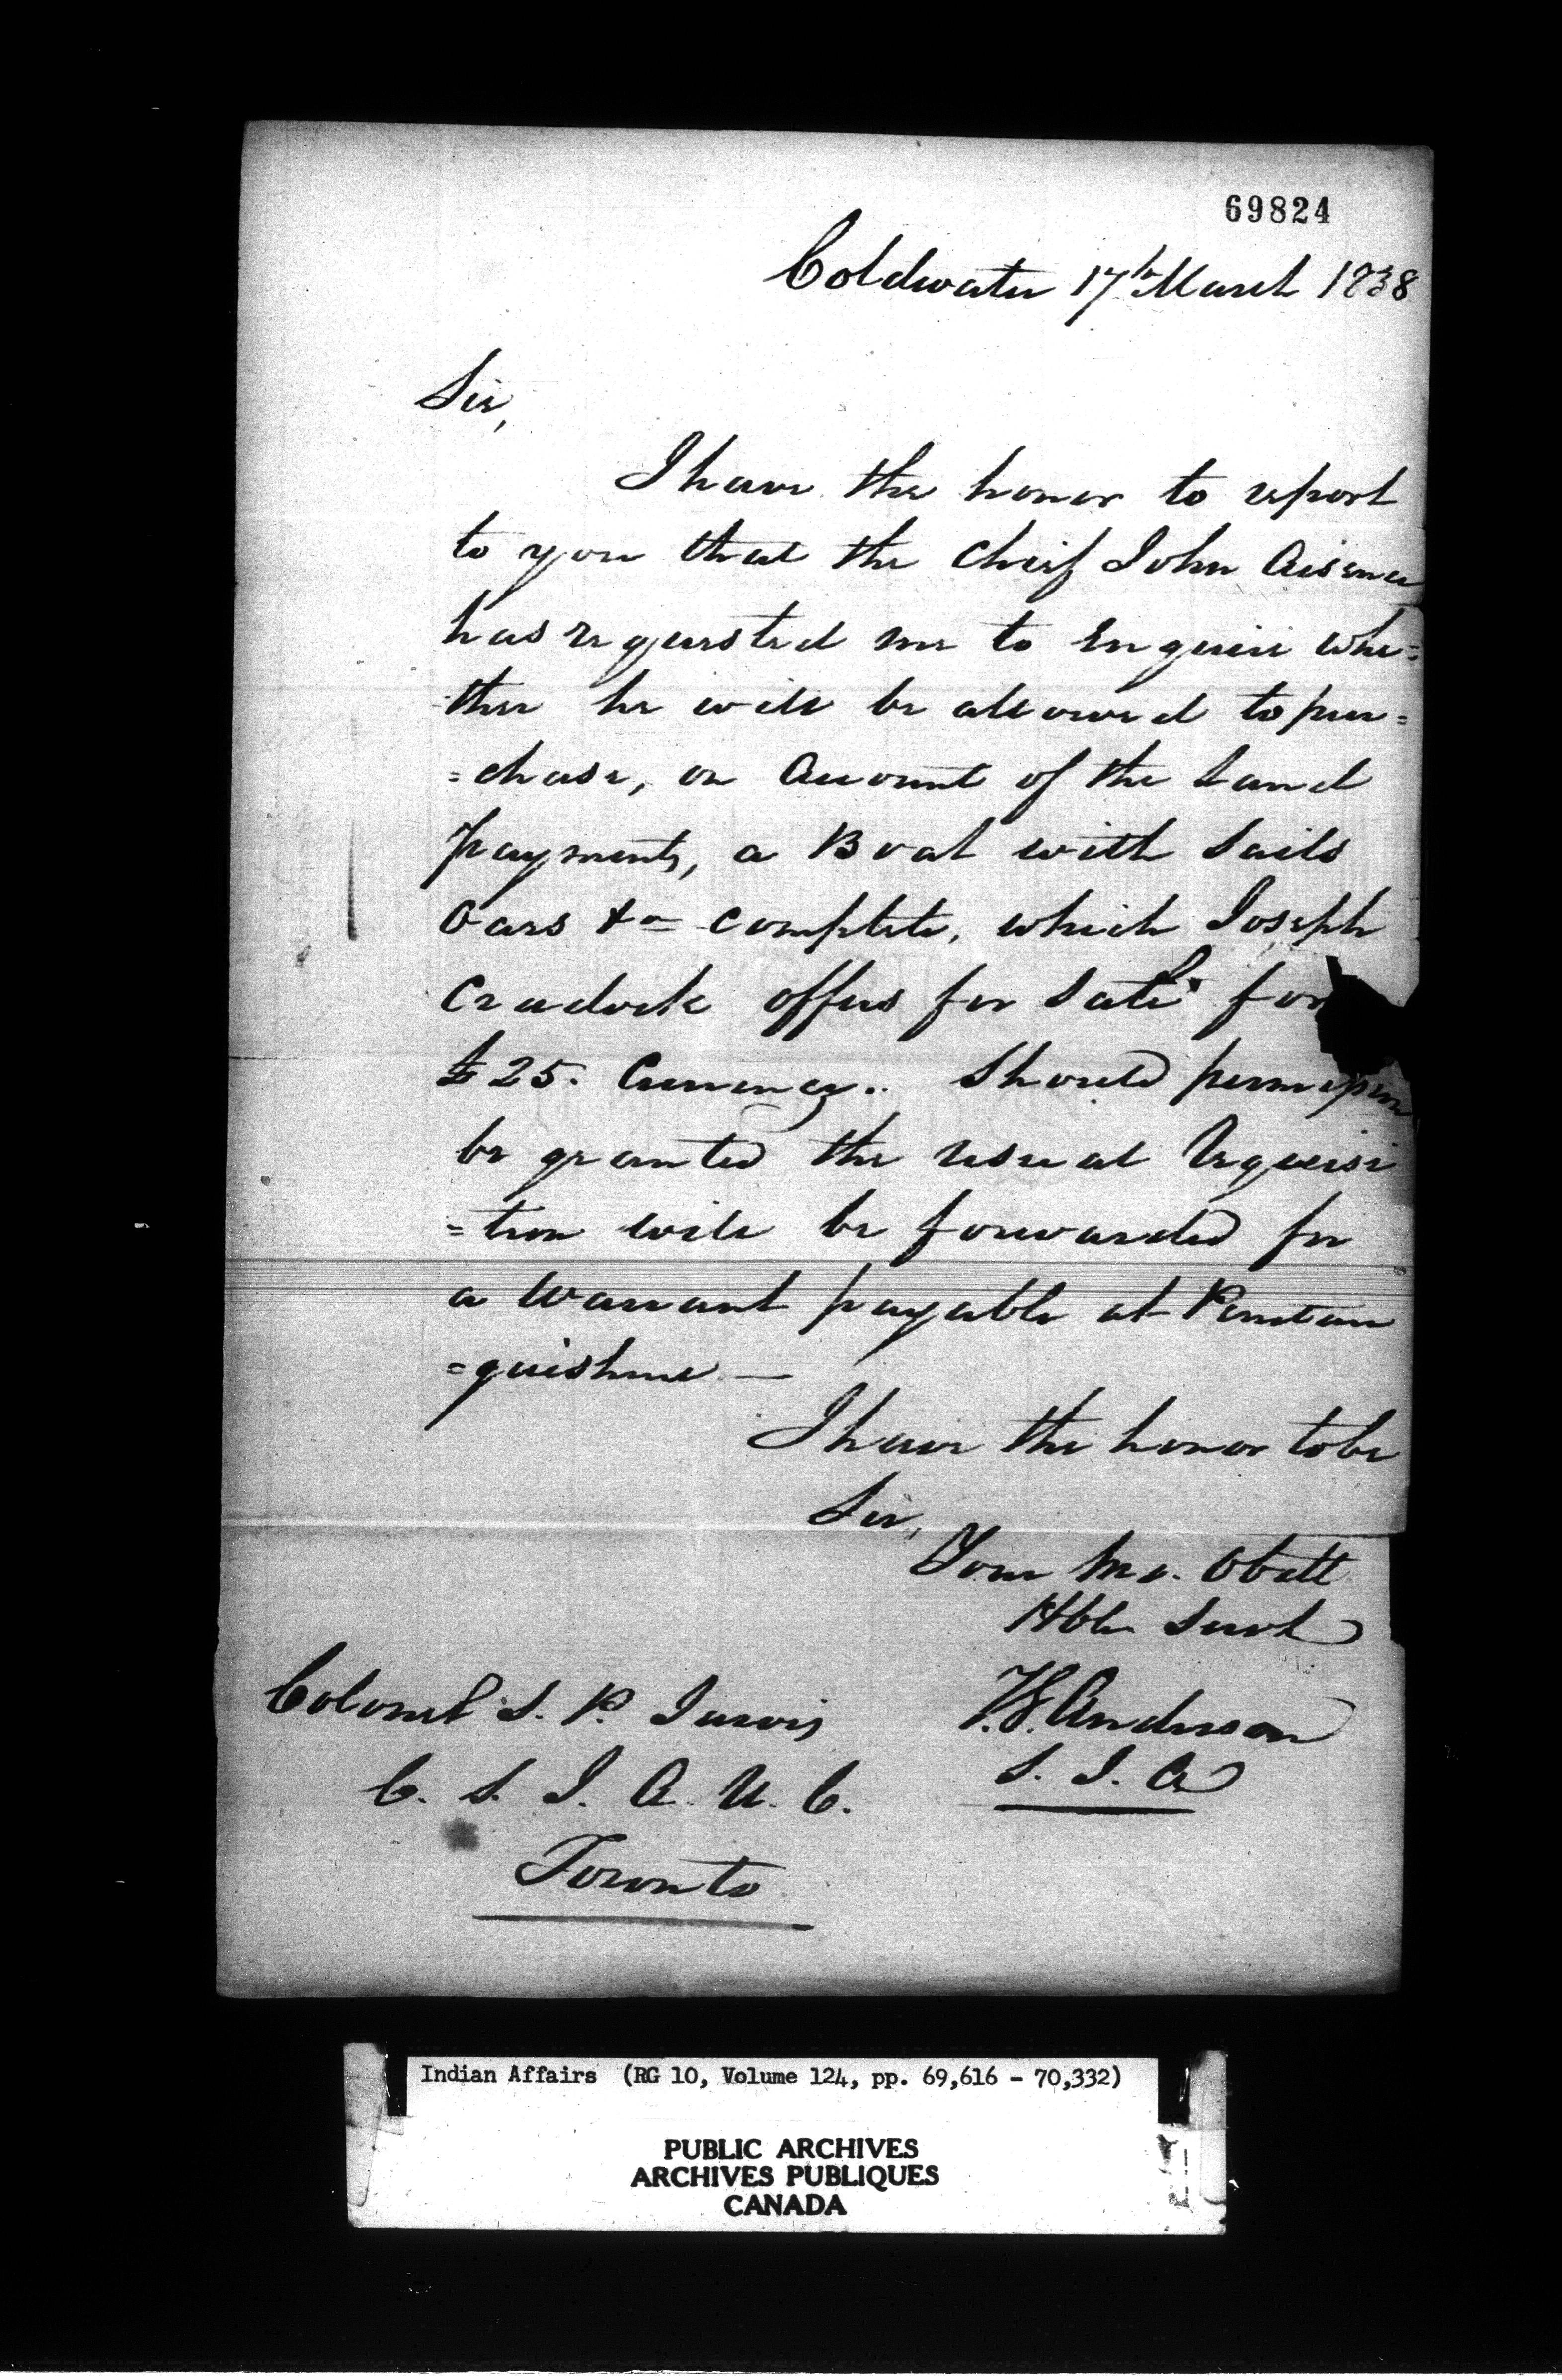 69824
Coldwater 17th March 1838
Sir,
I have the honor to report
to you that the Chief John Aisence
has requested me to Enquire whe=
ther he will be allowed to pur=
=chase, on Account of the Land
payments, a Boat with Sails
Oars &a complete, which Joseph
Cradock offers for Sale for
£25. Currency.. Should permission
be granted the usual Requisi
=tion will be forwarded for
a Warrant payable at Penetan
=guishine —
I have the honor to be
Sir,
Your Mo. Obdt
Hble Servt
T.G. Anderson
S. I. A
Colonel S. P. Jarvis
C. S. I. A. U. C.
Toronto
Indian Affairs (RG 10, Volume 124, pp. 69,616 - 70,332)
PUBLIC ARCHIVES
ARCHIVES PUBLIQUES
CANADA